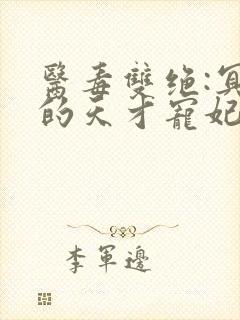 醫毒雙绝:冥
的天才寵妃
李軍邊